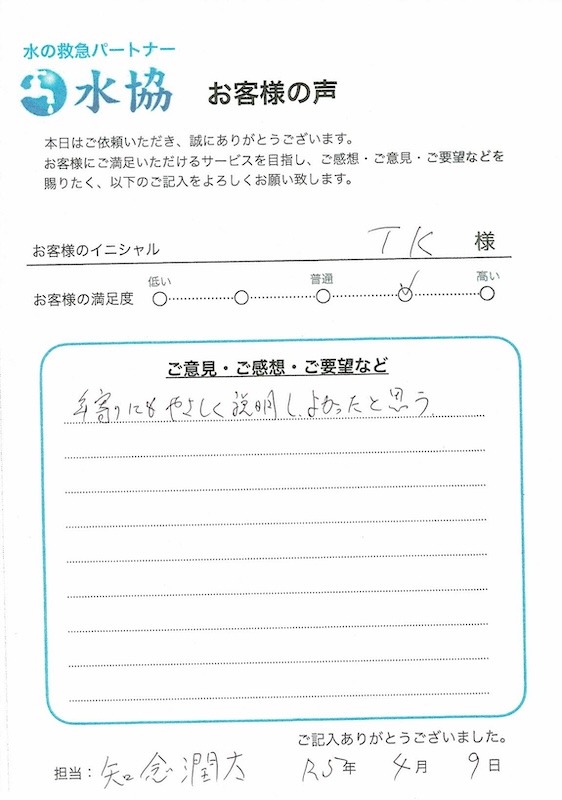 水の救急パートナー
水協 お客様の声
本日はご依頼いただき、誠にありがとうございます。
お客様にご満足いただけるサービスを目指し、ご感想・ご意見・ご要望などを
賜りたく、以下のご記入をよろしくお願い致します。
お客様のイニシャル TK 様
低い 普通 高い
お客様の満足度
ご意見・ご感想・ご要望など
年寄りにもやさしく説明し、よかったと思う。
ご記入ありがとうございました。
担当: 知念潤太 R5年 4月 9日